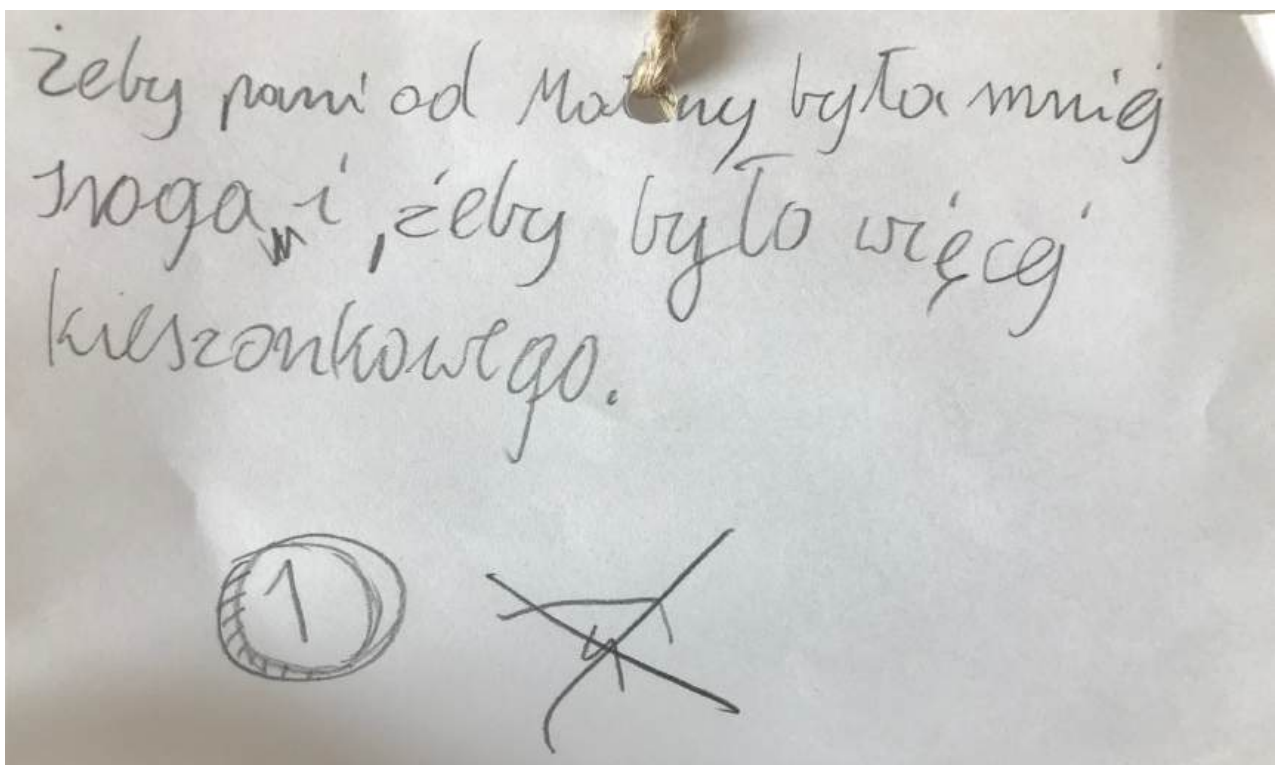 żeby pani od Matmy była mniej
sroga, i, żeby było więcej
kieszonkowego.
1